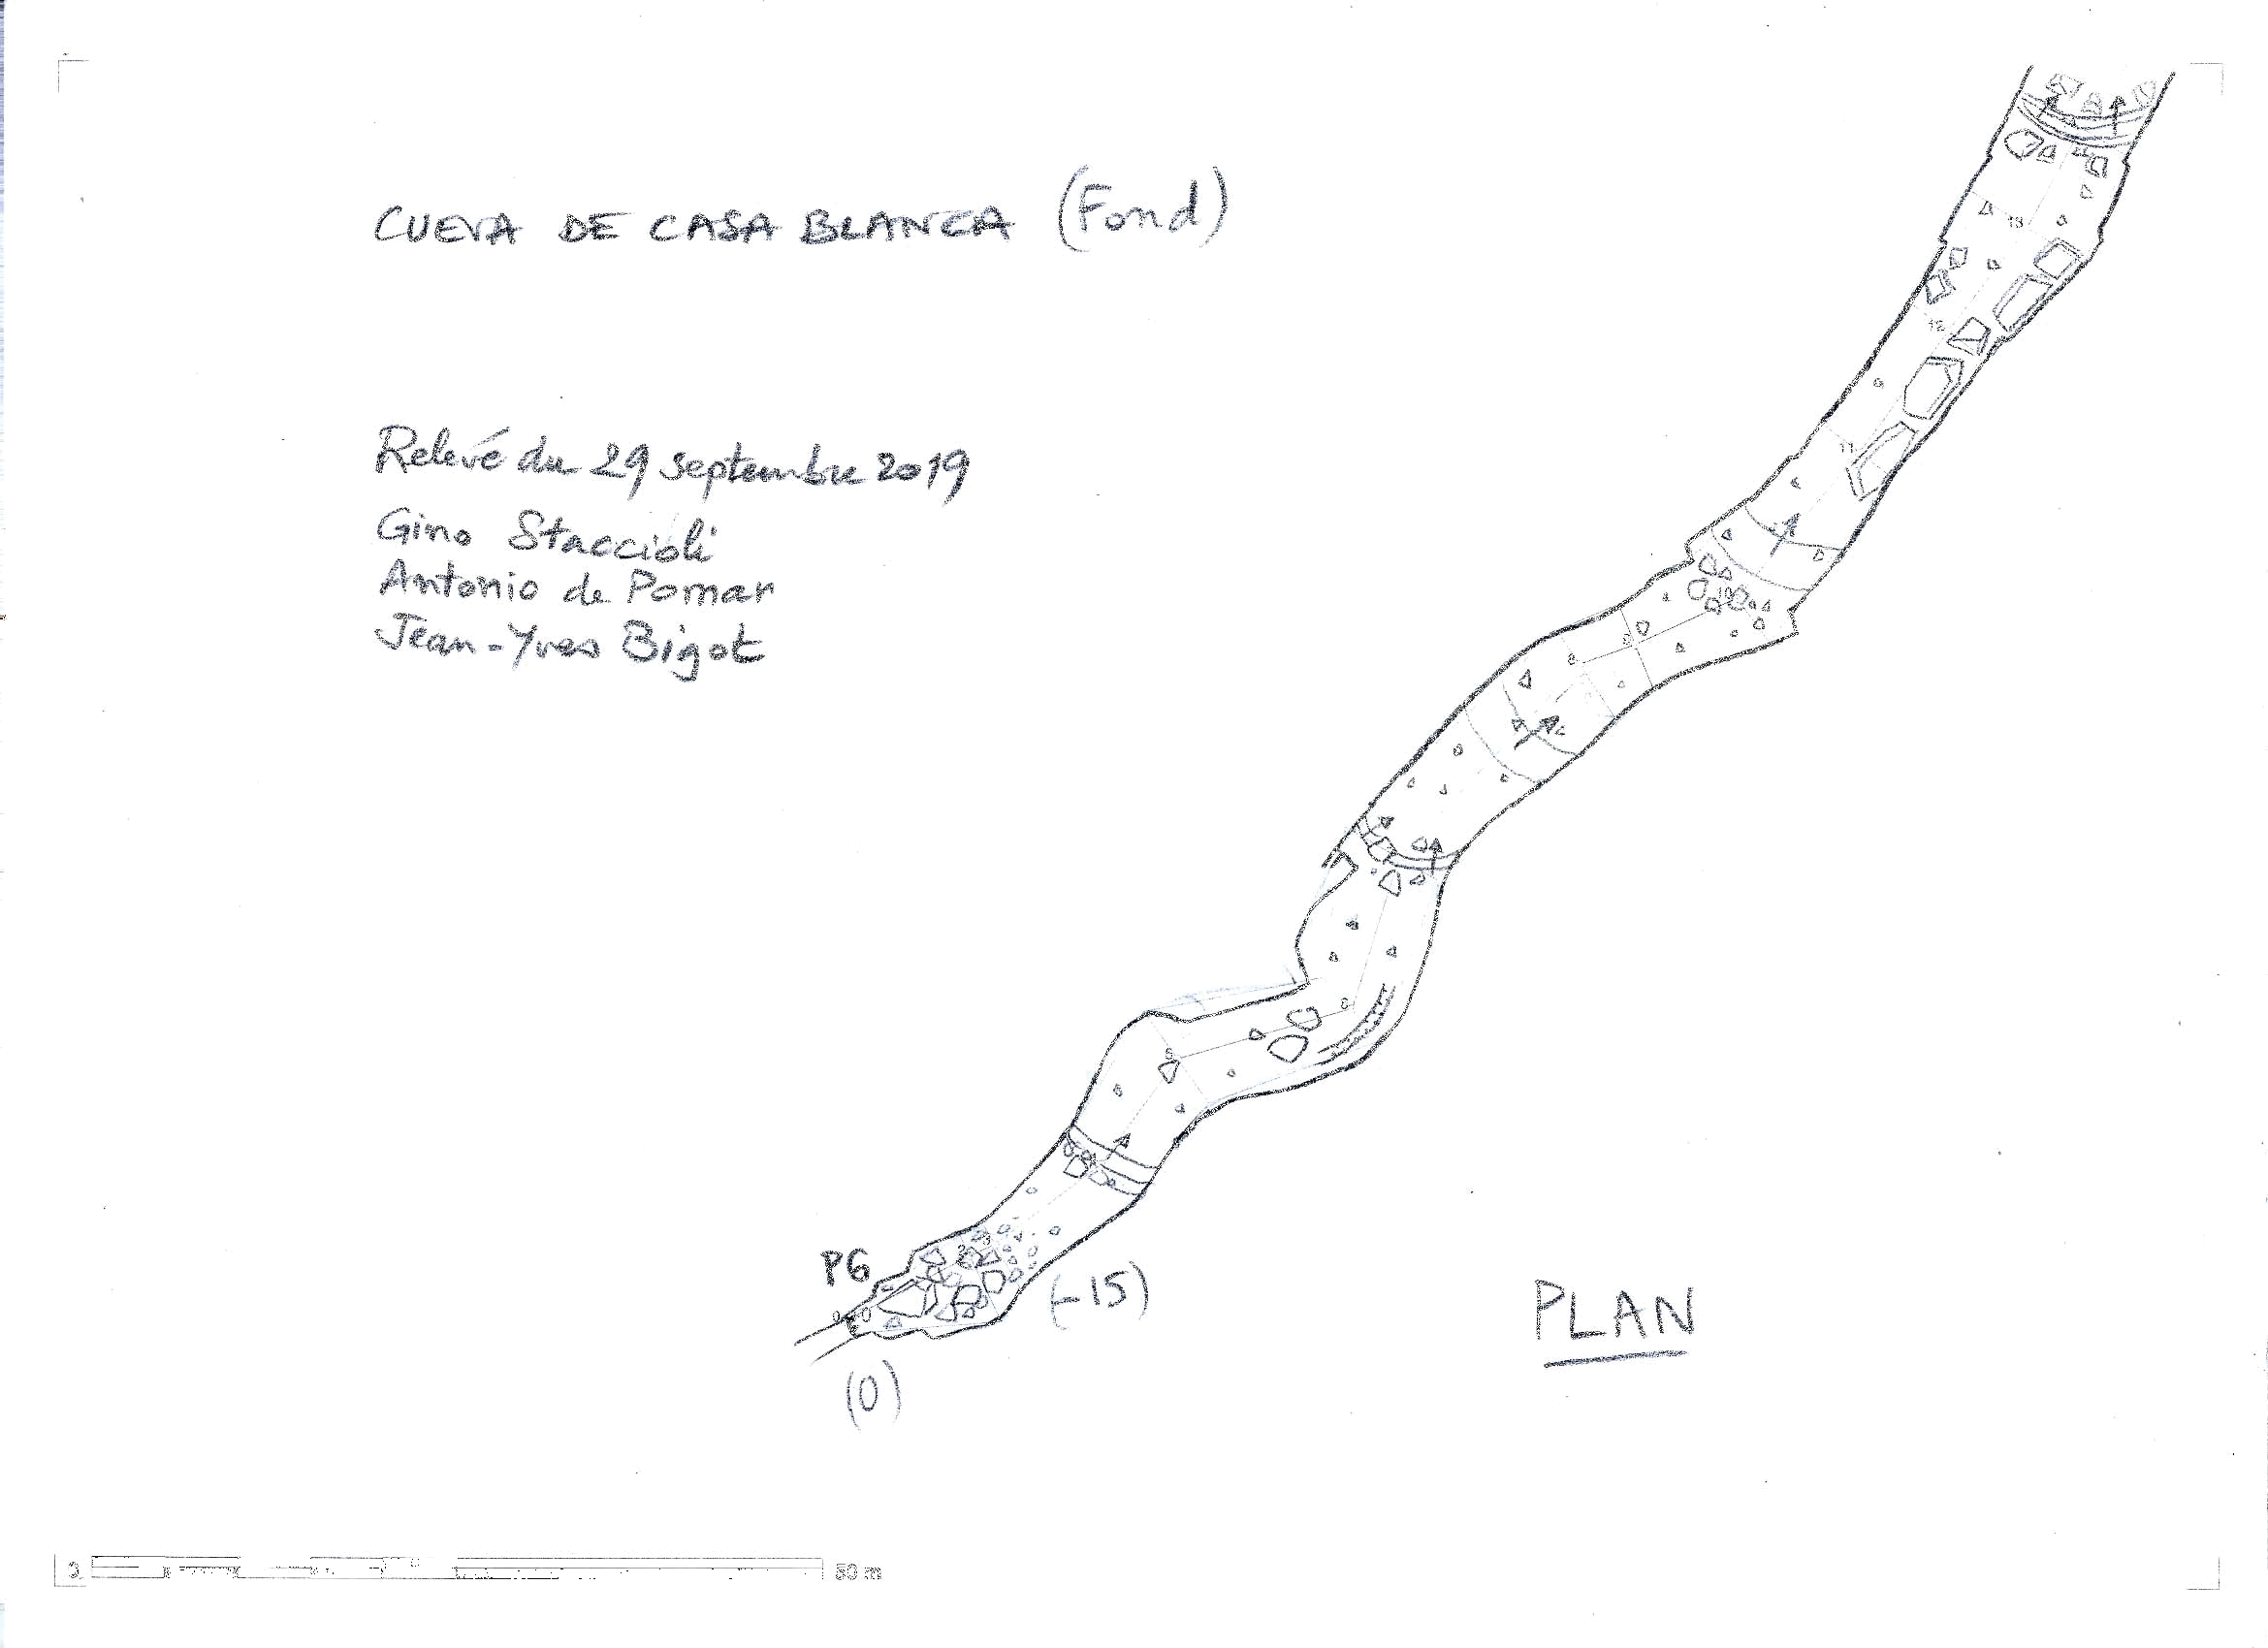 CUEVA DE CASA BLANCA (Fond)
Relevé du 29 septembre 2019
Gino Staccioli
Antonio de Pomar
Jean-Yves Bigot
13
12
11
8
P6
(-15)
(0)
PLAN
50 m